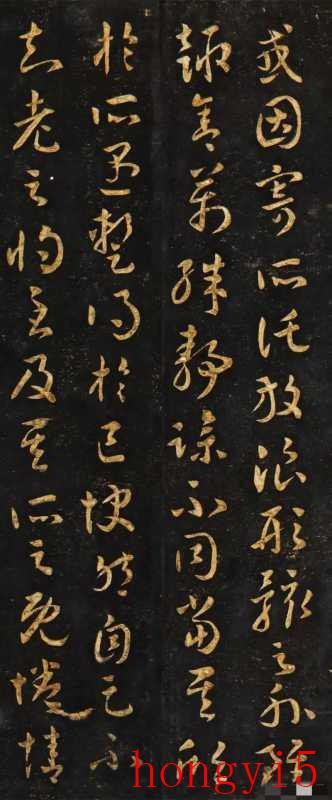 或因寄所託放浪形骸之外雖
趣舍萬殊靜躁不同當其欣
於所遇暫得於己快然自足不
知老之將至及其所之既惓情
hongyi5